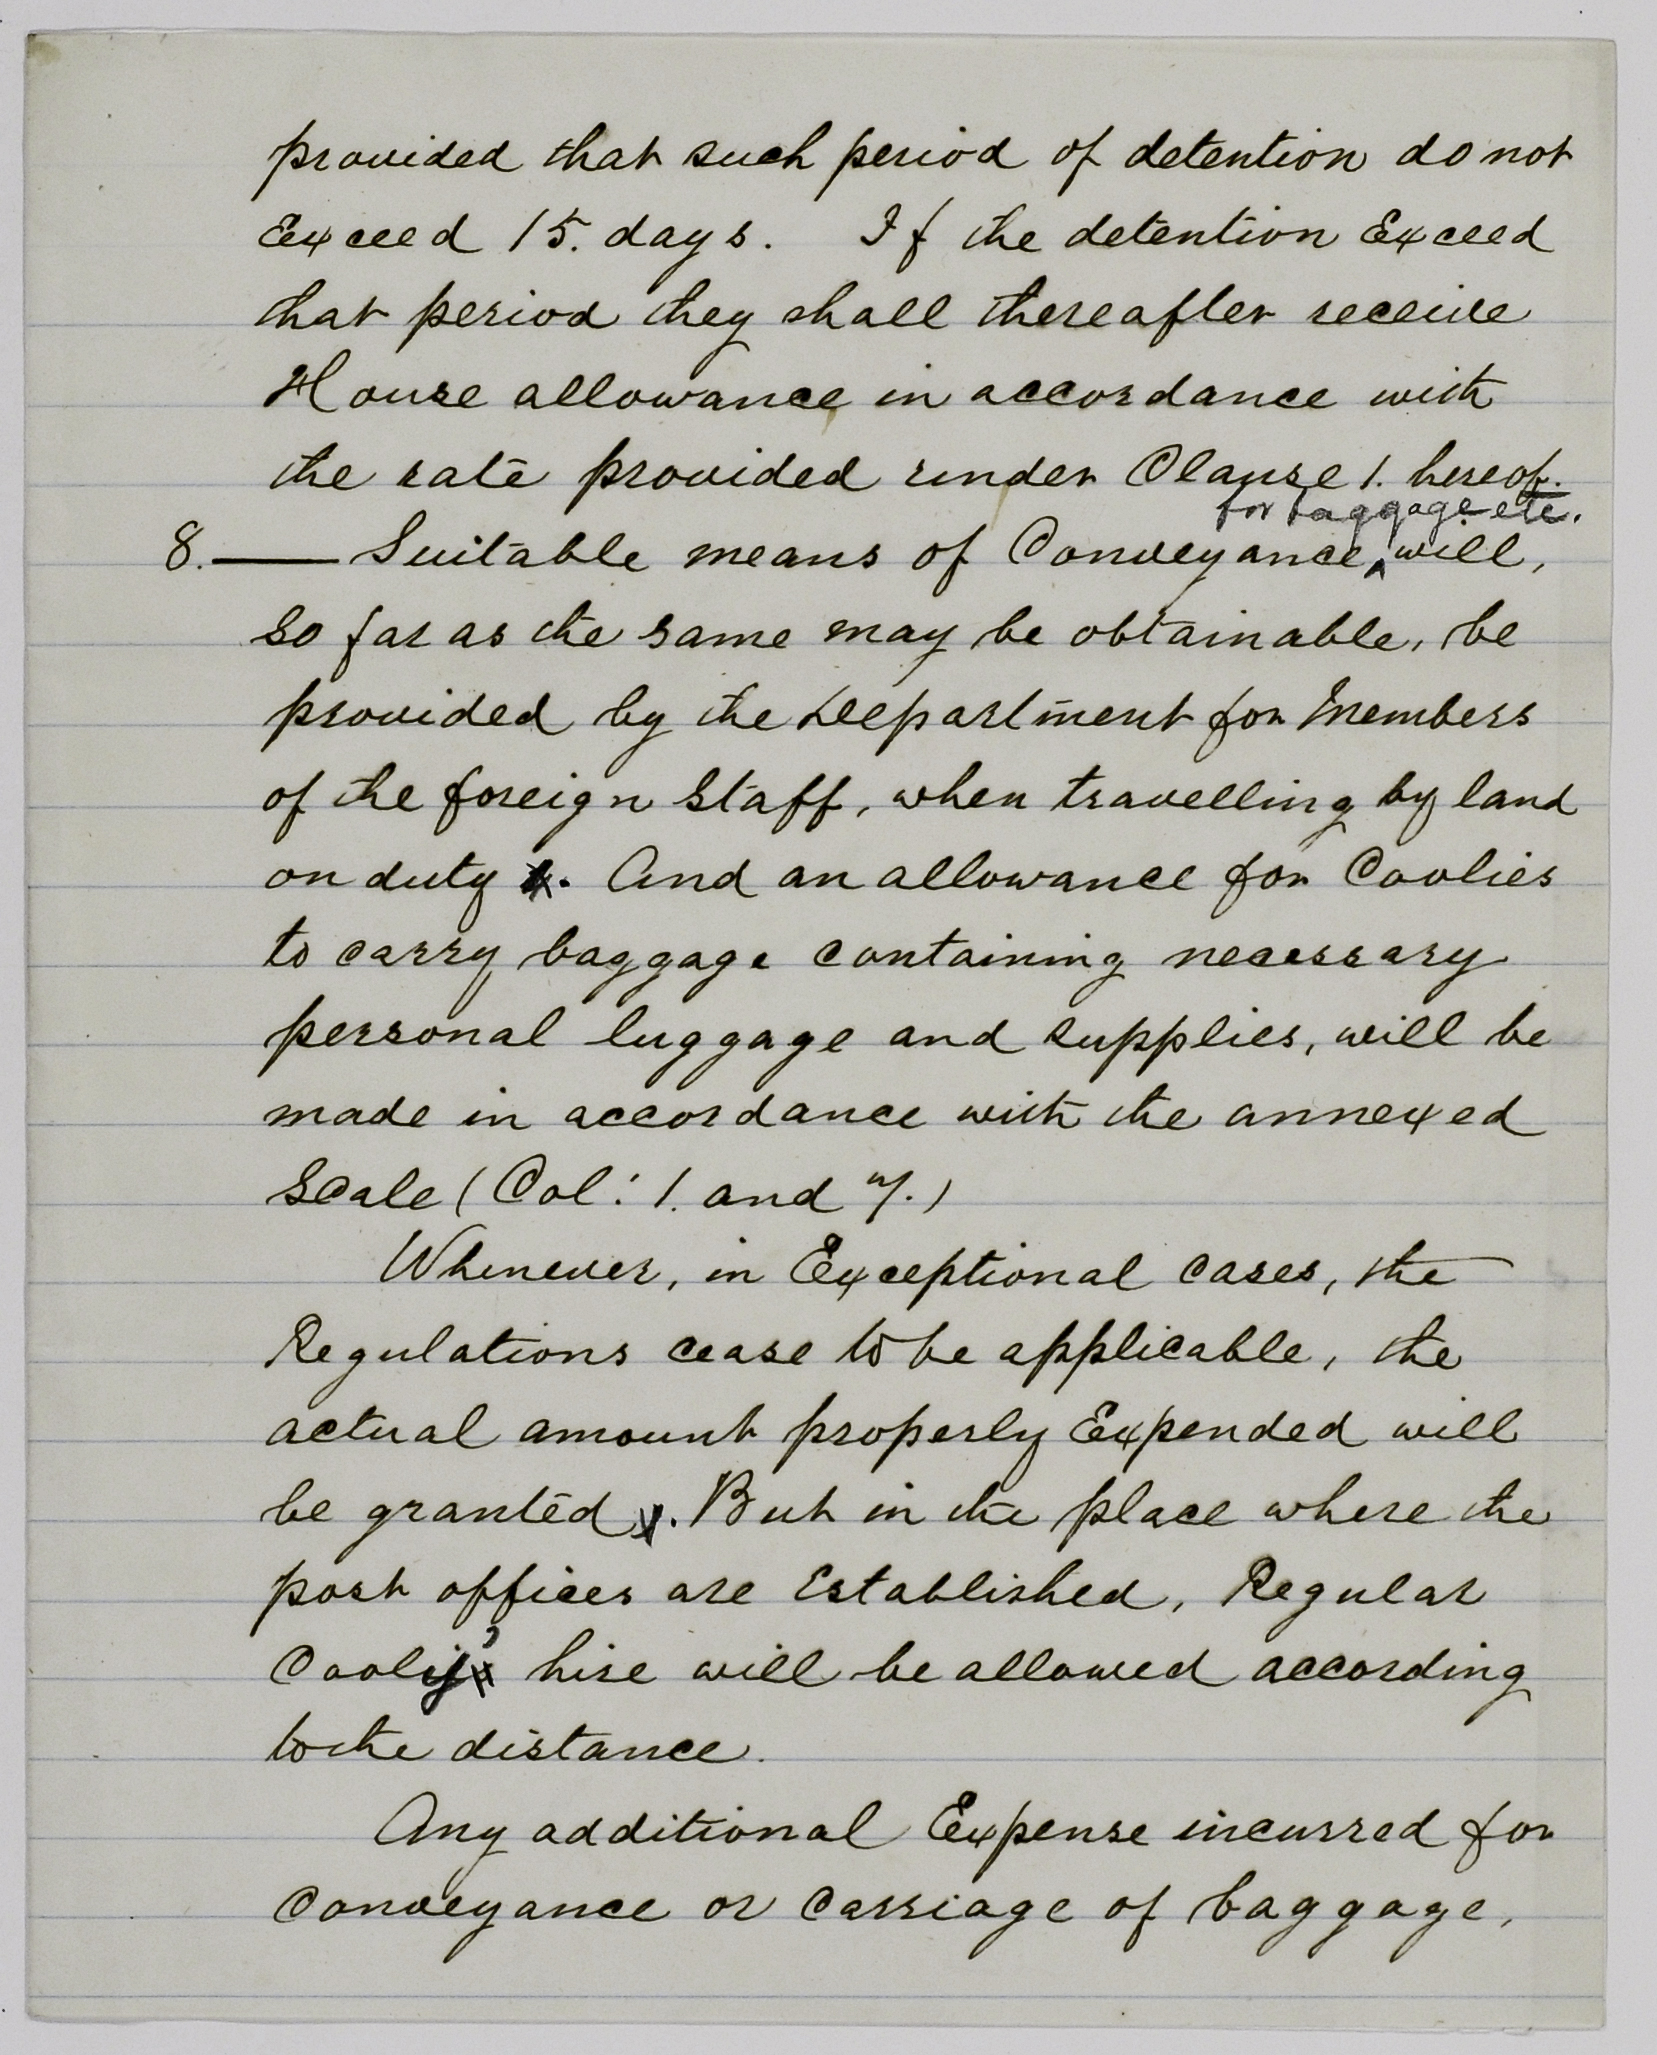 provided that such period of detention do not
Exceed 15. days. If the detention Exceed
that period they shall thereafter receive
House allowance in accordance with
the rate provided under Clause 1. hereof.
for baggage etc.
8. — Suitable means of Conveyance ‸ will,
so far as the same may be obtainable, be
provided by the Department for Members
of the foreign Staff, when travelling by land
on duty. And an allowance for Coolies
to carry baggage containing necessary
personal luggage and supplies, will be
made in accordance with the annexed
Scale (Col: 1. and 7.)
Whenever, in Exceptional cases, the
Regulations cease to be applicable, the
actual amount properly Expended will
be granted. But in the place where the
post offices are Established, Regular
hire will be allowed according
to the distance.
Any additional Expense incurred for
Conveyance or Carriage of baggage,